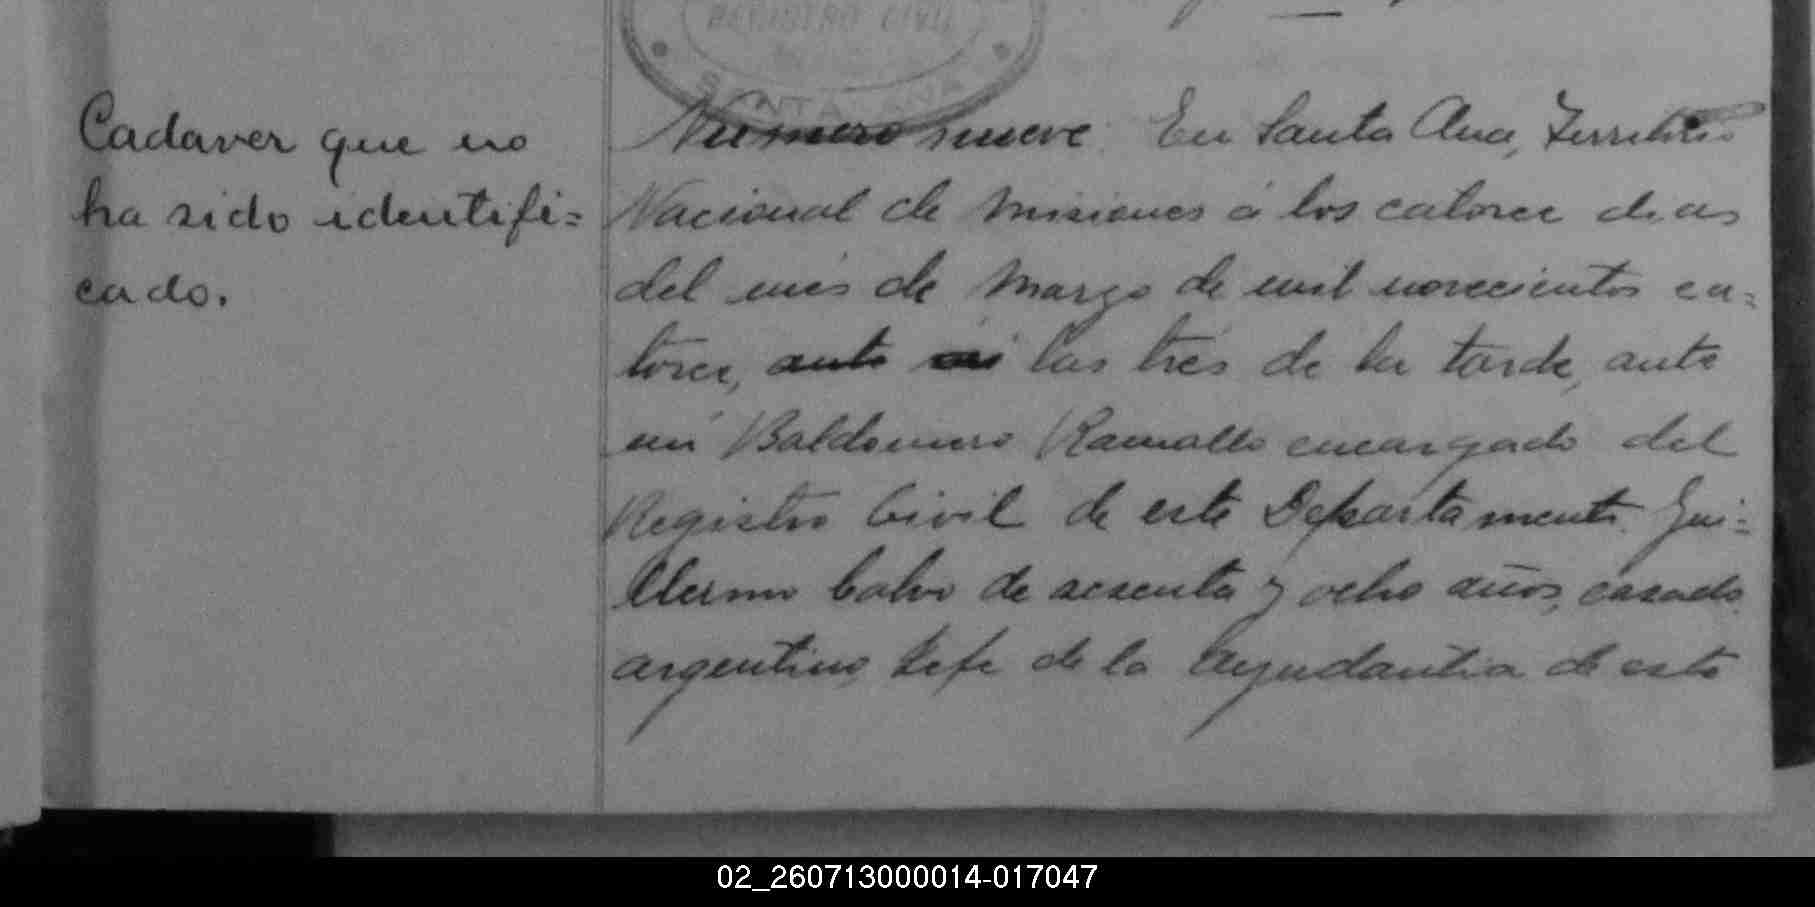 REGISTRO CIVIL
SANTA ANA
Cadaver que no
ha sido identifi=
cado.
Numero nueve. En Santa Ana, Territorio
Nacional de Misiones á los catorce dias
del més de Marzo de mil novecientos ca=
torce, ante mi las trés de la tarde, ante
mi Baldomero Ramallo encargado del
Registro Civil de este Departamento. Gui=
llermo Calvo de sesenta y ocho años, casado,
argentino, Jefe de la Ayudantia de este
02_260713000014-017047